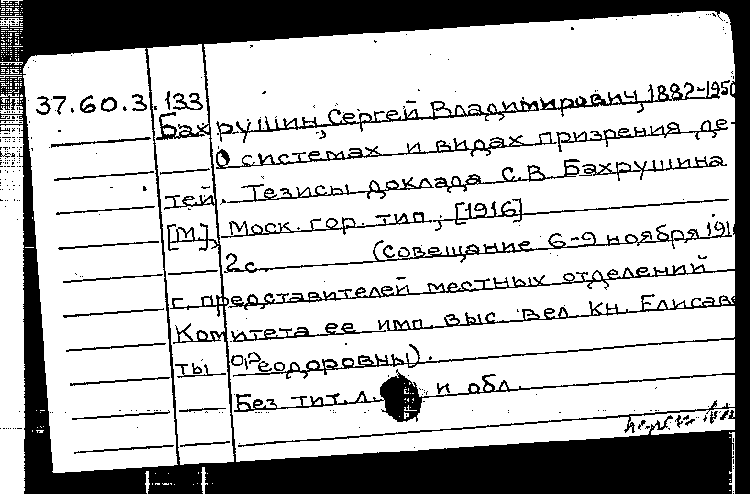 37.60.3.133
Бахрушин, Сергей Владимирович, 1882-1950
О системах и видах призрения де-
тей. Тезисы доклада С.В. Бахрушина
[М.], Моск. гор. тип., [1916]
2 с. (Совещание 6-9 ноября 191
г. представителей местных отделений
Комитета ее имп. выс. вел. кн. Елисаве
ты Феодоровны).
Без тит. л. и обл.